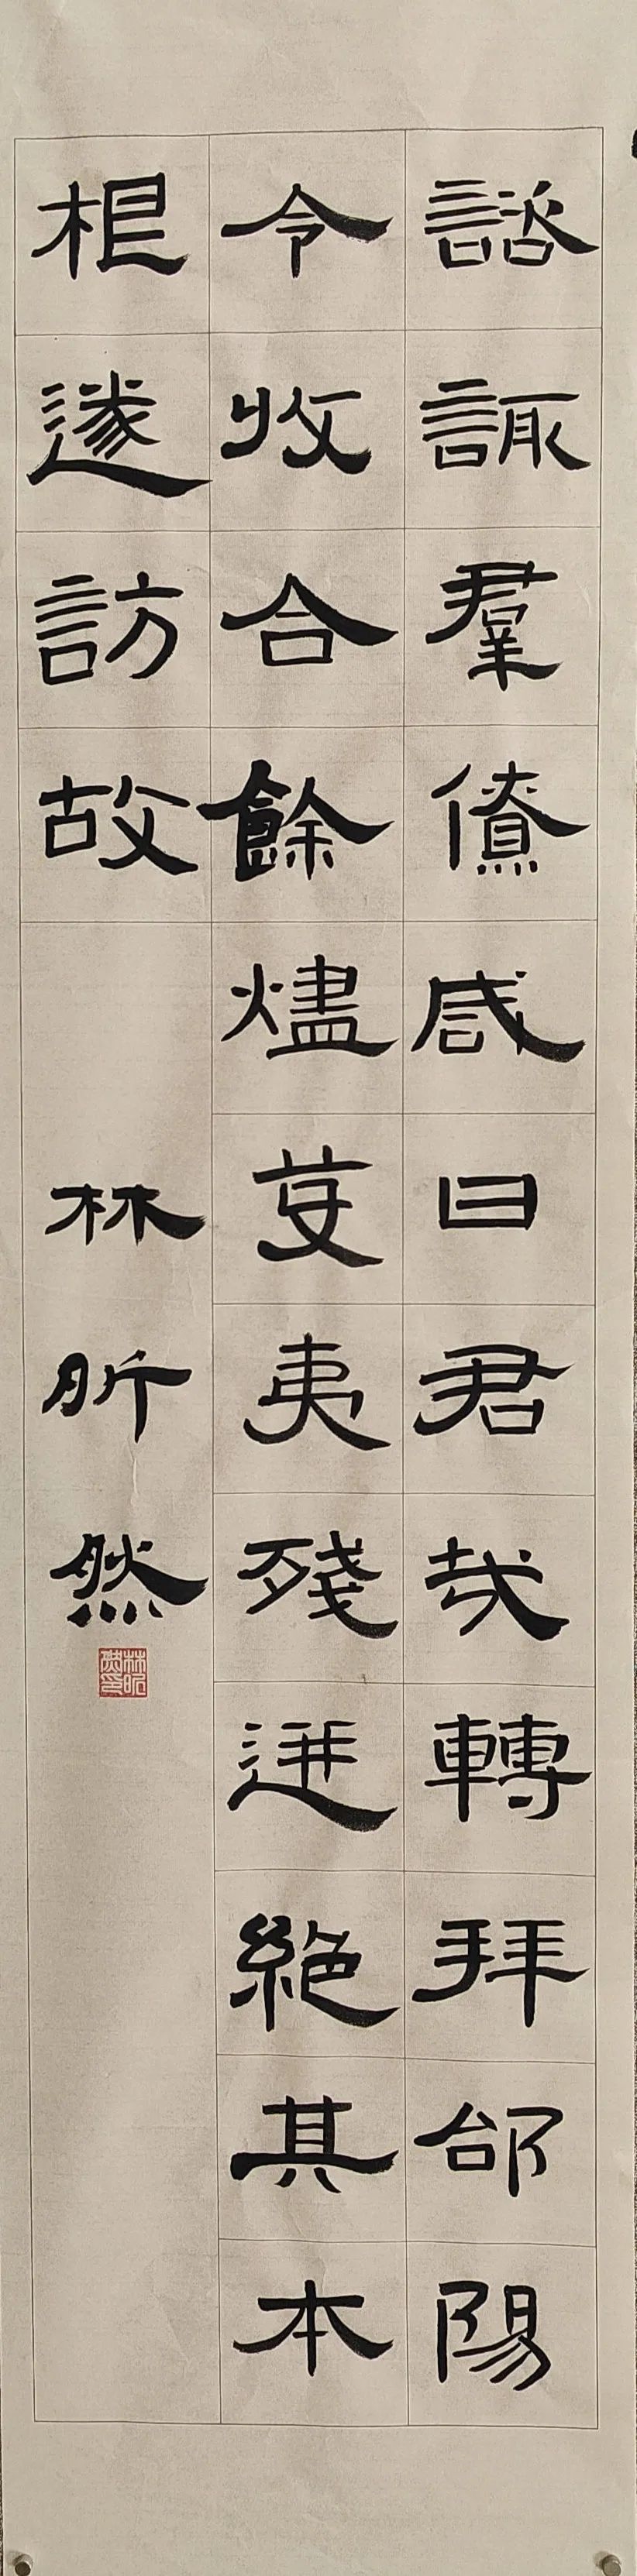 諮諏羣僚咸曰君哉轉拜郃陽
令收合餘燼芟夷殘迸絕其本
根遂訪故
林昕然
林昕然印